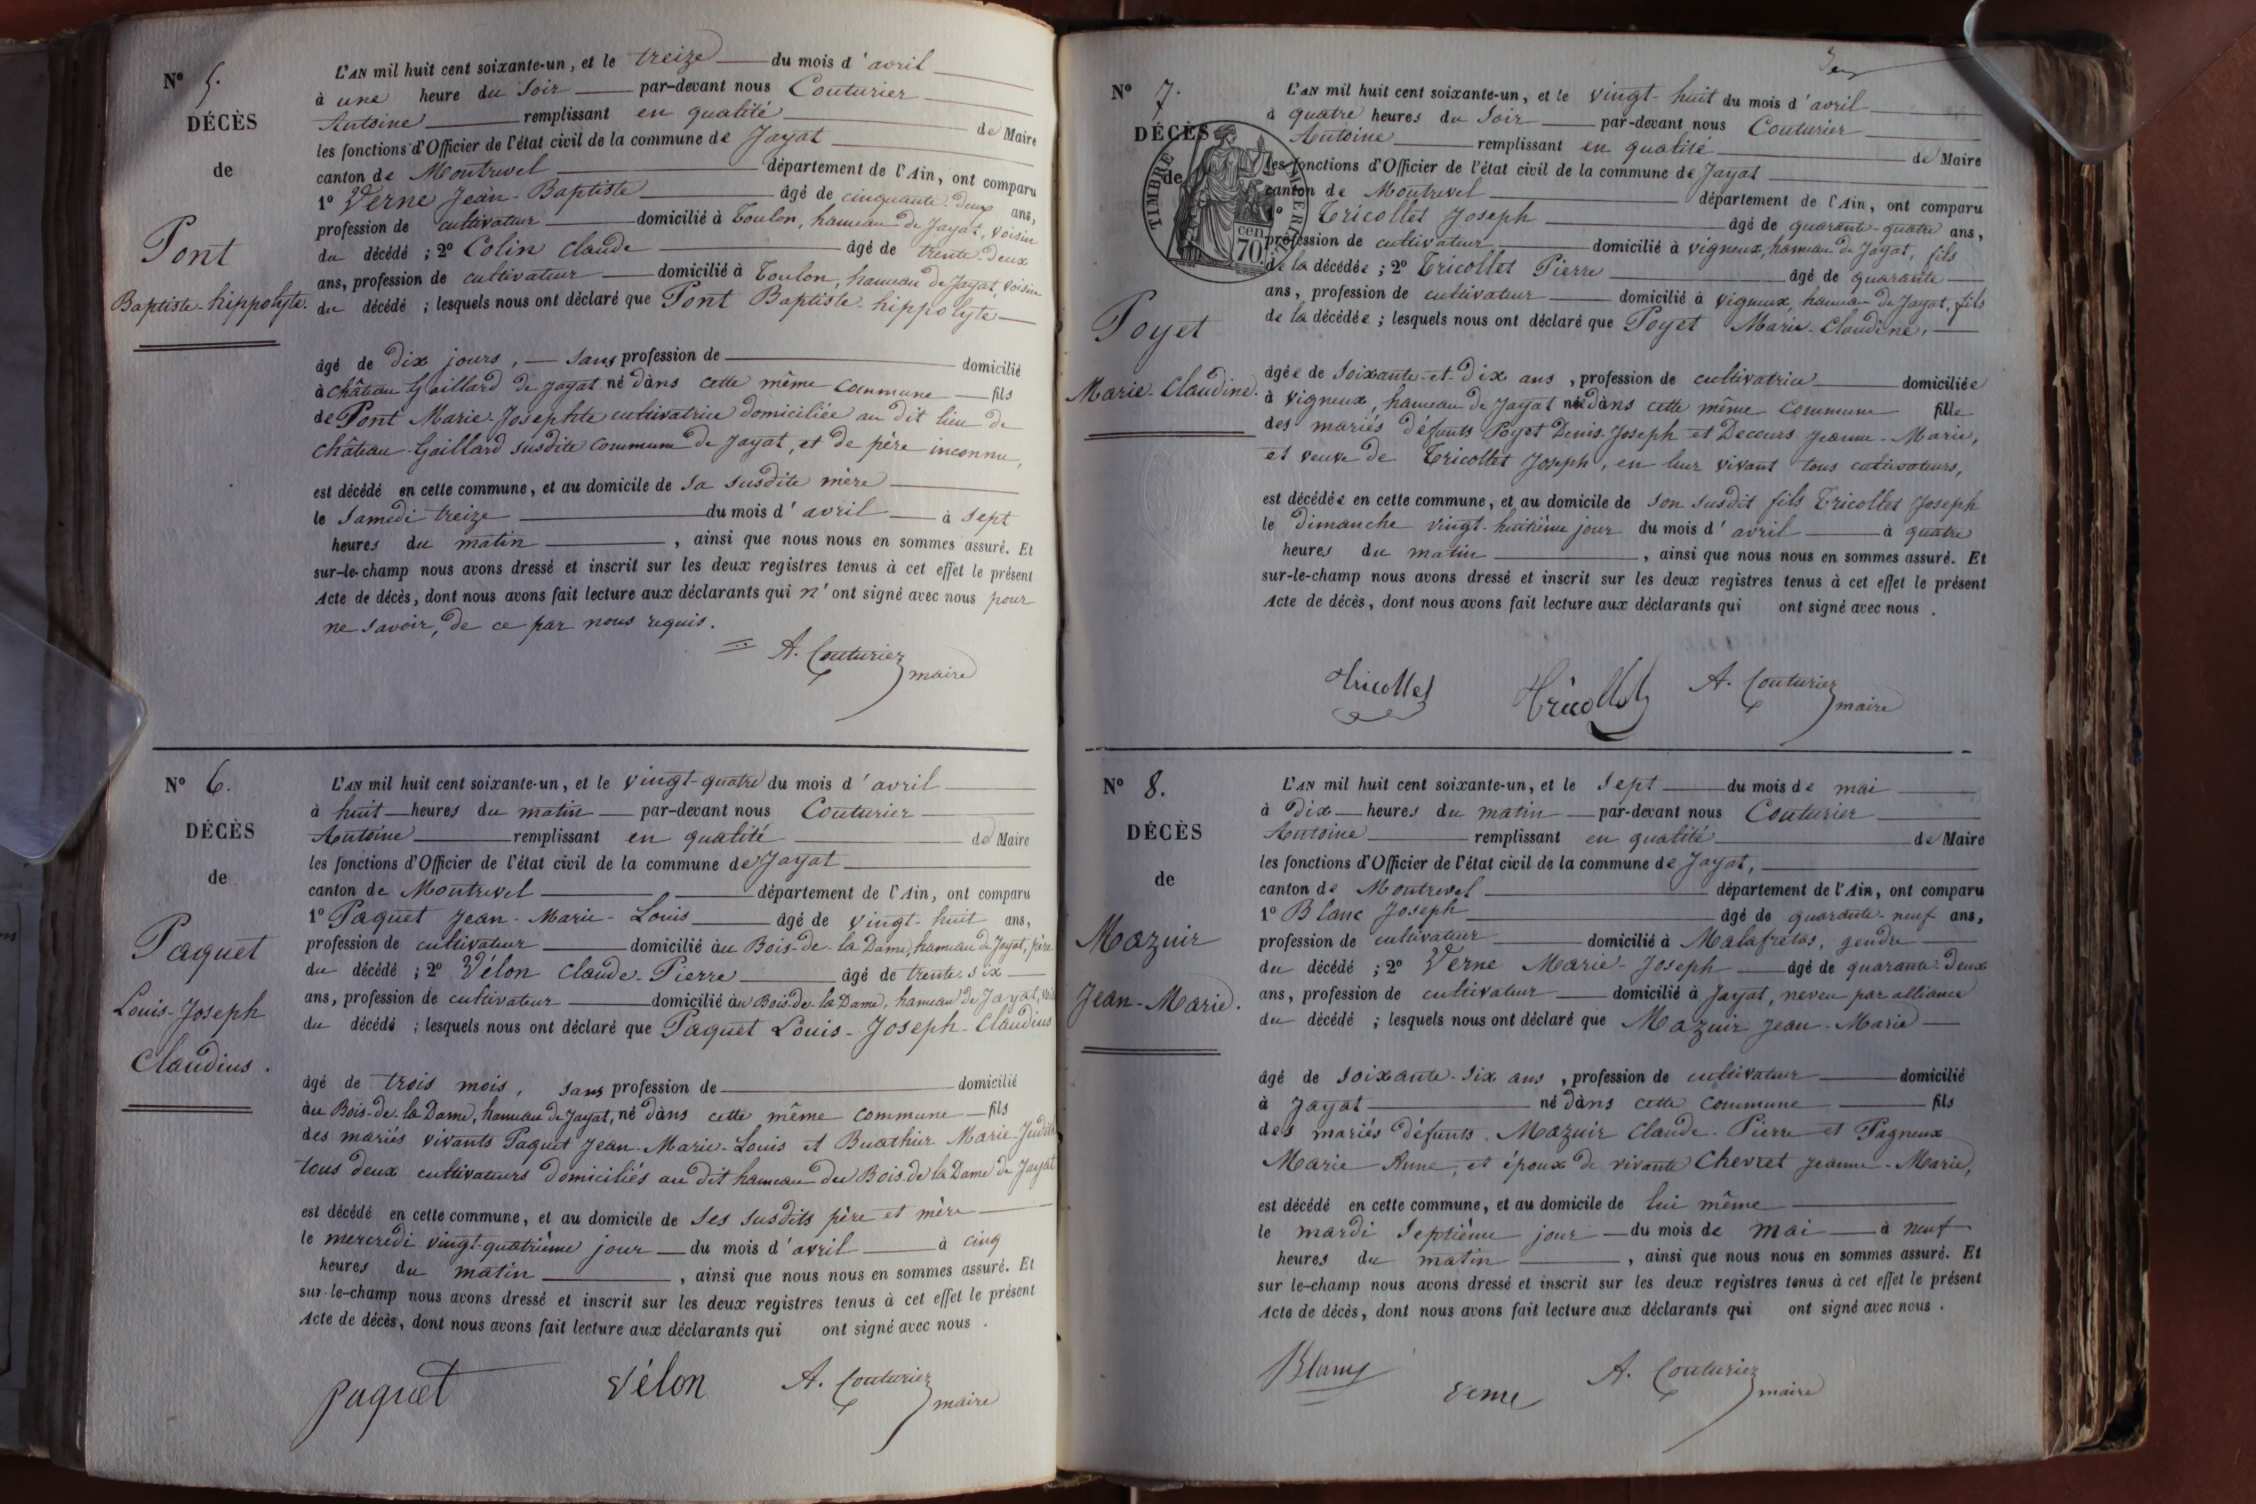 N° 5.
DÉCÈS
de
Pont
Baptiste-hippolyte.
L'AN mil huit cent soixante-un, et le treize du mois d'avril
à une heure du soir par-devant nous Couturier
Antoine remplissant en qualité de Maire
les fonctions d'Officier de l'état civil de la commune de Jayat
canton de Montrevel département de l'Ain, ont comparu
1° Verne Jean-Baptiste âgé de cinquante-deux ans,
profession de cultivateur domicilié à Toulon, hameau de Jayat, voisin
du décédé ; 2° Colin Claude âgé de trente-deux
ans, profession de cultivateur domicilié à Toulon, hameau de Jayat, voisin
du décédé ; lesquels nous ont déclaré que Pont Baptiste-hippolyte
âgé de dix jours, sans profession de domicilié
à château Gaillard de Jayat né dans cette même commune fils
de Pont Marie-Josephte cultivatrice domiciliée au dit lieu de
château-Gaillard susdite commune de Jayat, et de père inconnu,
est décédé en cette commune, et au domicile de sa susdite mère
le samedi treize du mois d'avril à sept
heures du matin, ainsi que nous nous en sommes assuré. Et
sur-le-champ nous avons dressé et inscrit sur les deux registres tenus à cet effet le présent
Acte de décès, dont nous avons fait lecture aux déclarants qui n'ont signé avec nous pour
ne savoir, de ce par nous requis.
A. Couturier
maire
N° 6.
DÉCÈS
de
Paquet
Louis-Joseph
Claudius.
L'AN mil huit cent soixante-un, et le vingt-quatre du mois d'avril
à huit heures du matin par-devant nous Couturier
Antoine remplissant en qualité de Maire
les fonctions d'Officier de l'état civil de la commune de Jayat
canton de Montrevel département de l'Ain, ont comparu
1° Paquet Jean-Marie-Louis âgé de vingt-huit ans,
profession de cultivateur domicilié au Bois-de-la Dame, hameau de Jayat, père
du décédé ; 2° Vélon Claude-Pierre âgé de trente-six
ans, profession de cultivateur domicilié au Bois-de-la Dame, hameau de Jayat,
du décédé ; lesquels nous ont déclaré que Paquet Louis-Joseph-Claudius
âgé de trois mois, sans profession de domicilié
au Bois-de-la Dame, hameau de Jayat, né dans cette même commune fils
des mariés vivants Paquet Jean-Marie-Louis et Buathier Marie-Judith
tous deux cultivateurs domiciliés au dit hameau du Bois-de la Dame de Jayat
est décédé en cette commune, et au domicile de ses susdits père et mère
le mercredi vingt-quatrième jour du mois d'avril à cinq
heures du matin, ainsi que nous nous en sommes assuré. Et
sur-le-champ nous avons dressé et inscrit sur les deux registres tenus à cet effet le présent
Acte de décès, dont nous avons fait lecture aux déclarants qui ont signé avec nous.
paquet Vélon A. Couturier
maire
N° 7.
DÉCÈS
de
TIMBRE
cen
70
Poyet
Marie-Claudine.
L'AN mil huit cent soixante-un, et le vingt-huit du mois d'avril
à quatre heures du soir par-devant nous Couturier
Antoine remplissant en qualité de Maire
les fonctions d'Officier de l'état civil de la commune de Jayat
canton de Montrevel département de l'Ain, ont comparu
1° Tricollet Joseph âgé de quarante-quatre ans,
profession de cultivateur domicilié à vigneux, hameau de Jayat, fils
de la décédée ; 2° Tricollet Pierre âgé de quarante
ans, profession de cultivateur domicilié à vigneux, hameau de Jayat, fils
de la décédée ; lesquels nous ont déclaré que Poyet Marie-Claudine,
âgée de soixante-et-dix ans, profession de cultivatrice domiciliée
à vigneux, hameau de Jayat née dans cette même commune fille
des mariés défunts Poyet Denis-Joseph et Decours Jeanne-Marie,
et veuve de Tricollet Joseph, en leur vivant tous cultivateurs,
est décédée en cette commune, et au domicile de son susdit fils Tricollet Joseph
le dimanche vingt-huitième jour du mois d'avril à quatre
heures du matin, ainsi que nous nous en sommes assuré. Et
sur-le-champ nous avons dressé et inscrit sur les deux registres tenus à cet effet le présent
Acte de décès, dont nous avons fait lecture aux déclarants qui ont signé avec nous.
Tricollet Tricollet A. Couturier
maire
N° 8.
DÉCÈS
de
Mazuir
Jean-Marie.
L'AN mil huit cent soixante-un, et le sept du mois de mai
à dix heures du matin par-devant nous Couturier
Antoine remplissant en qualité de Maire
les fonctions d'Officier de l'état civil de la commune de Jayat,
canton de Montrevel département de l'Ain, ont comparu
1° Blanc Joseph âgé de quarante-neuf ans,
profession de cultivateur domicilié à Malafretas, gendre
du décédé ; 2° Verne Marie-Joseph âgé de quarante-deux
ans, profession de cultivateur domicilié à Jayat, neveu par alliance
du décédé ; lesquels nous ont déclaré que Mazuir Jean-Marie
âgé de soixante-six ans, profession de cultivateur domicilié
à Jayat né dans cette commune fils
des mariés défunts Mazuir Claude-Pierre et Pagneux
Marie-Anne, et époux de vivante Chevret Jeanne-Marie,
est décédé en cette commune, et au domicile de lui même
le mardi septième jour du mois de mai à neuf
heures du matin, ainsi que nous nous en sommes assuré. Et
sur le-champ nous avons dressé et inscrit sur les deux registres tenus à cet effet le présent
Acte de décès, dont nous avons fait lecture aux déclarants qui ont signé avec nous.
Blanc Verne A. Couturier
maire